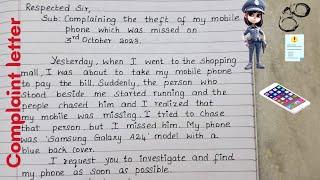 Complaint letter
Respected Sir,
Sub: Complaining the theft of my mobile
phone which was missed on
3rd October 2023.
Yesterday, when I went to the shopping
mall, I was about to take my mobile phone
to pay the bill. Suddenly, the person who
stood beside me started running and the
people chased him and I realized that
my mobile was missing. I tried to chase
that person but I missed him. My phone
was 'Samsung Galaxy A24' model with a
blue back cover.
I request you to investigate and find
my phone as soon as possible.